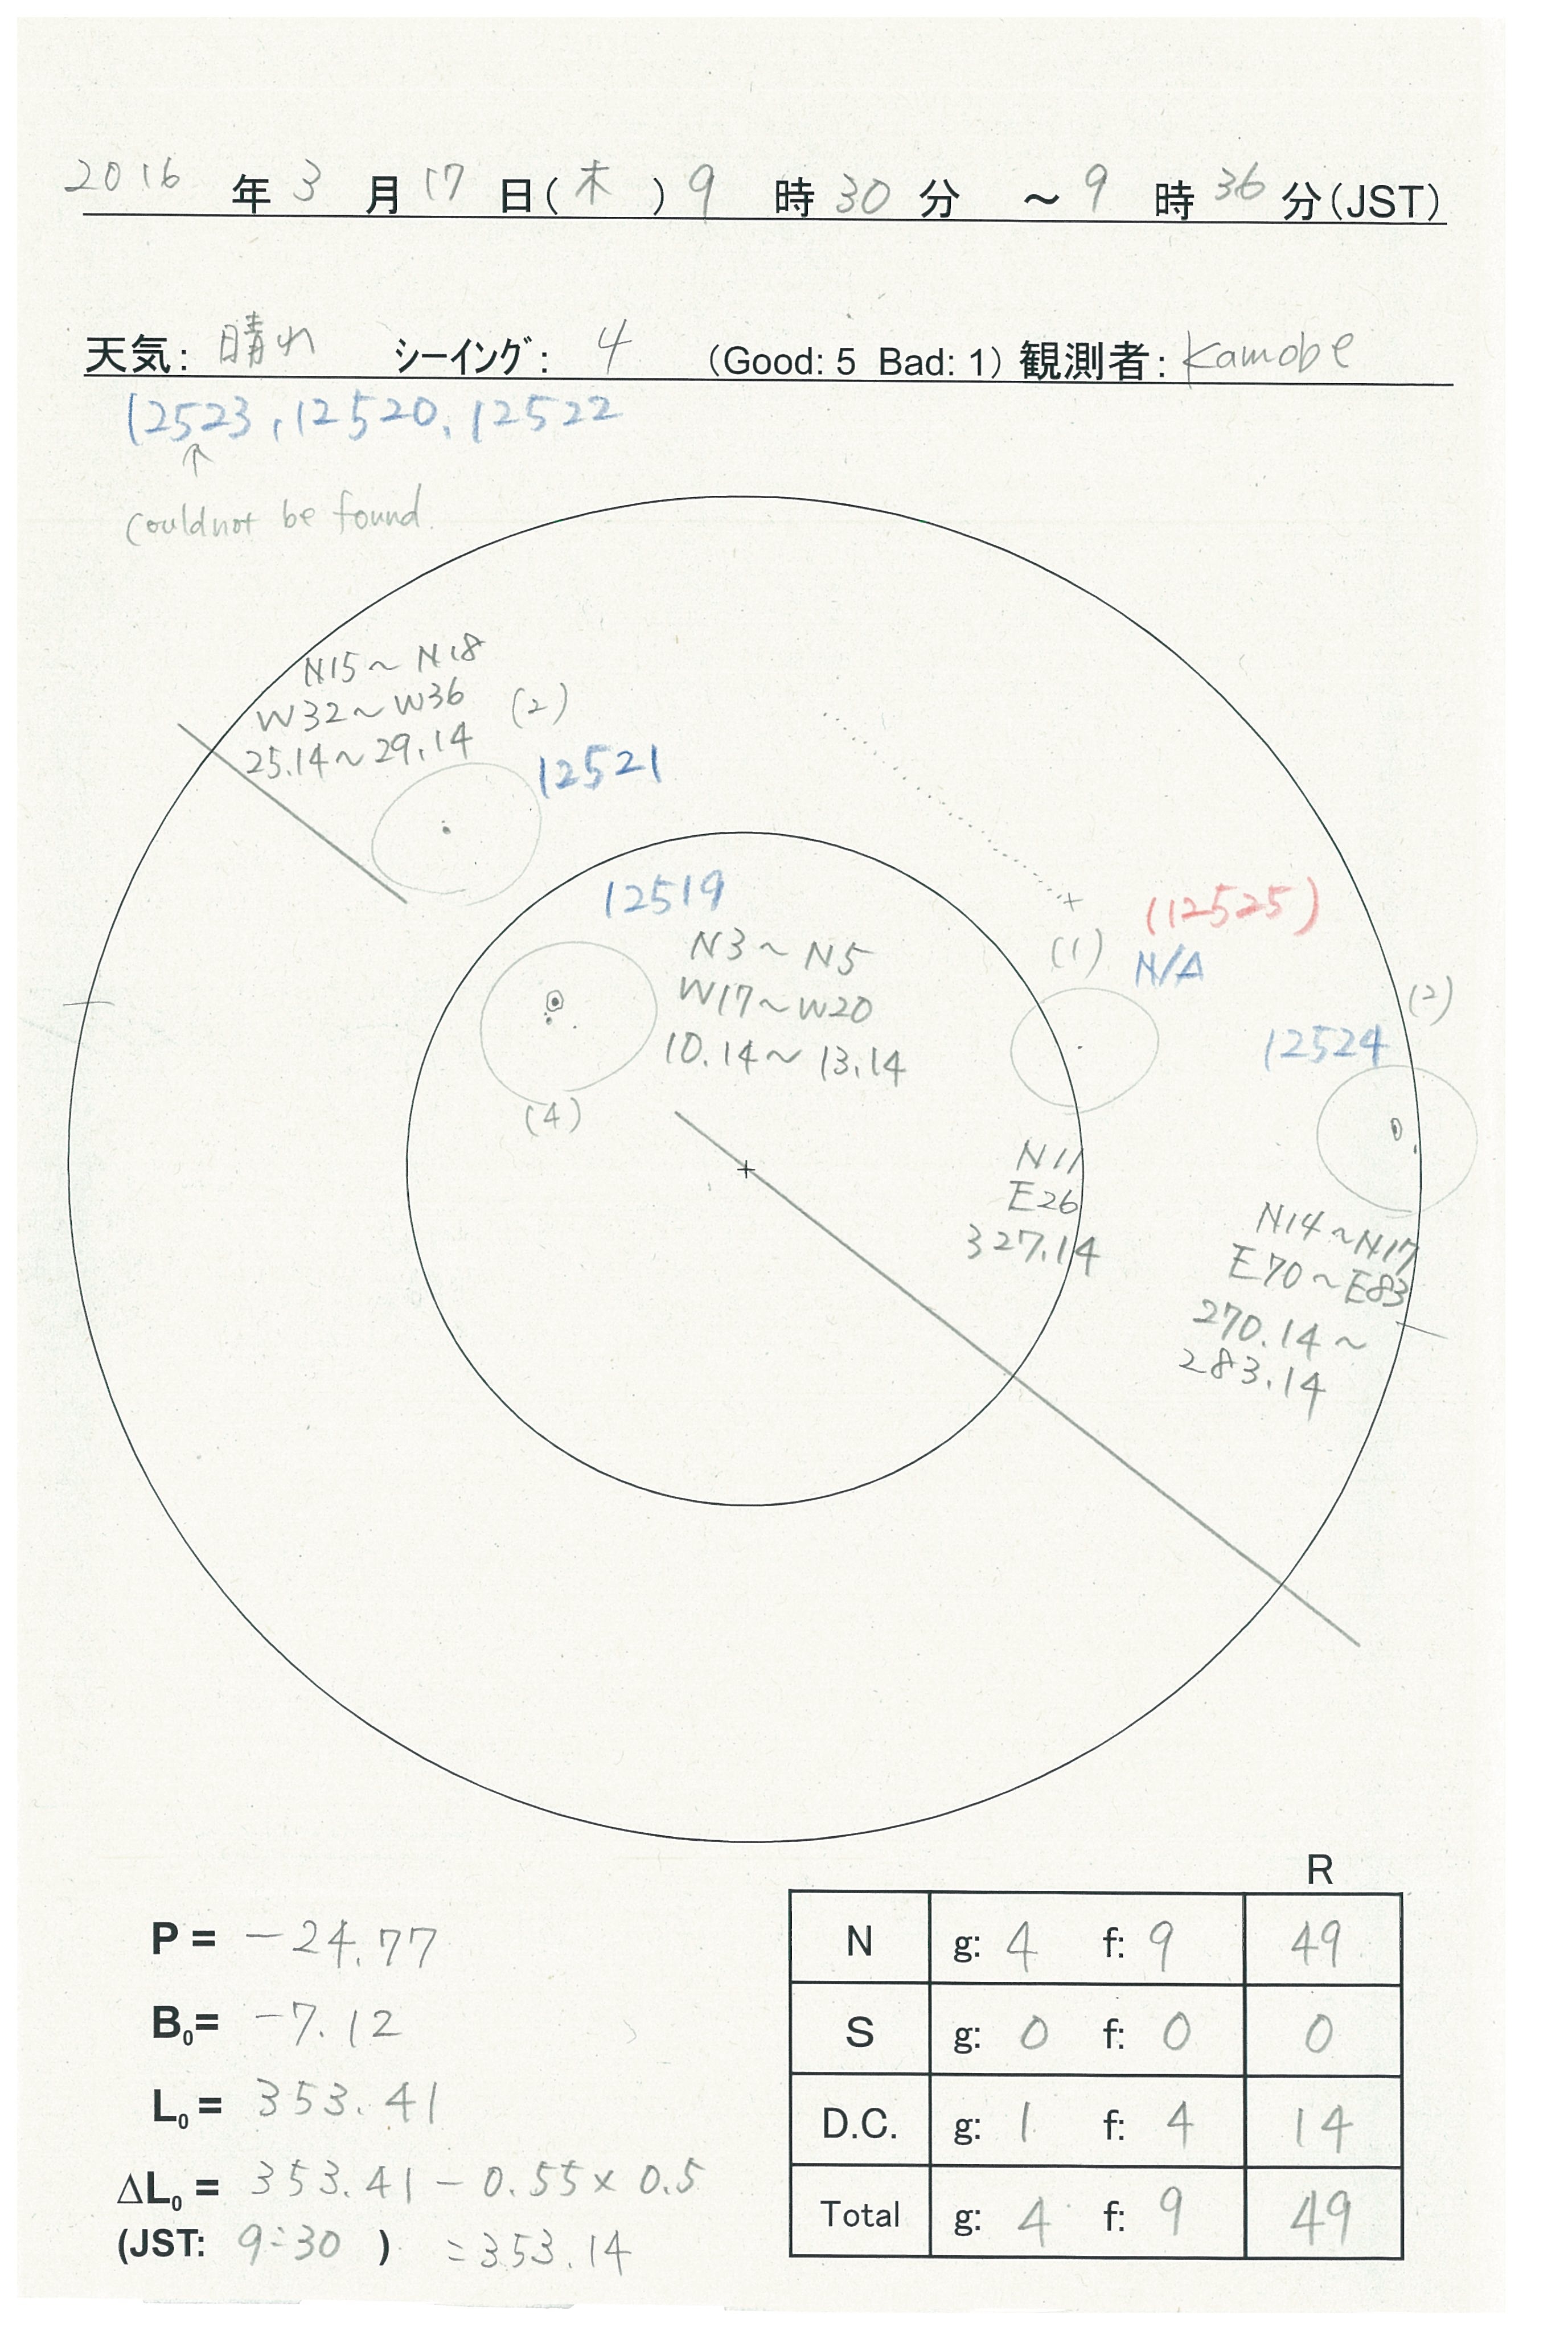 2016 年 3 月 17 日(木) 9 時 30 分 ～ 9 時 36 分(JST)
天気: 晴れ シーイング: 4 (Good: 5 Bad: 1) 観測者: Kamobe
12523, 12520, 12522
↑
Couldnot be found.
N15～N18
W32～W36 (2)
25.14～29.14
12521
12519
N3～N5
W17～W20
10.14～13.14
(4)
(12525)
(1) N/A
N11
E26
327.14
(2)
12524
N14～N17
E70～E83
270.14～
283.14
R
P = -24.77
N g: 4 f: 9 49
B₀= -7.12
S g: 0 f: 0 0
L₀ = 353.41
D.C. g: 1 f: 4 14
ΔL₀ = 353.41 - 0.55 × 0.5
Total g: 4 f: 9 49
(JST: 9:30 ) = 353.14